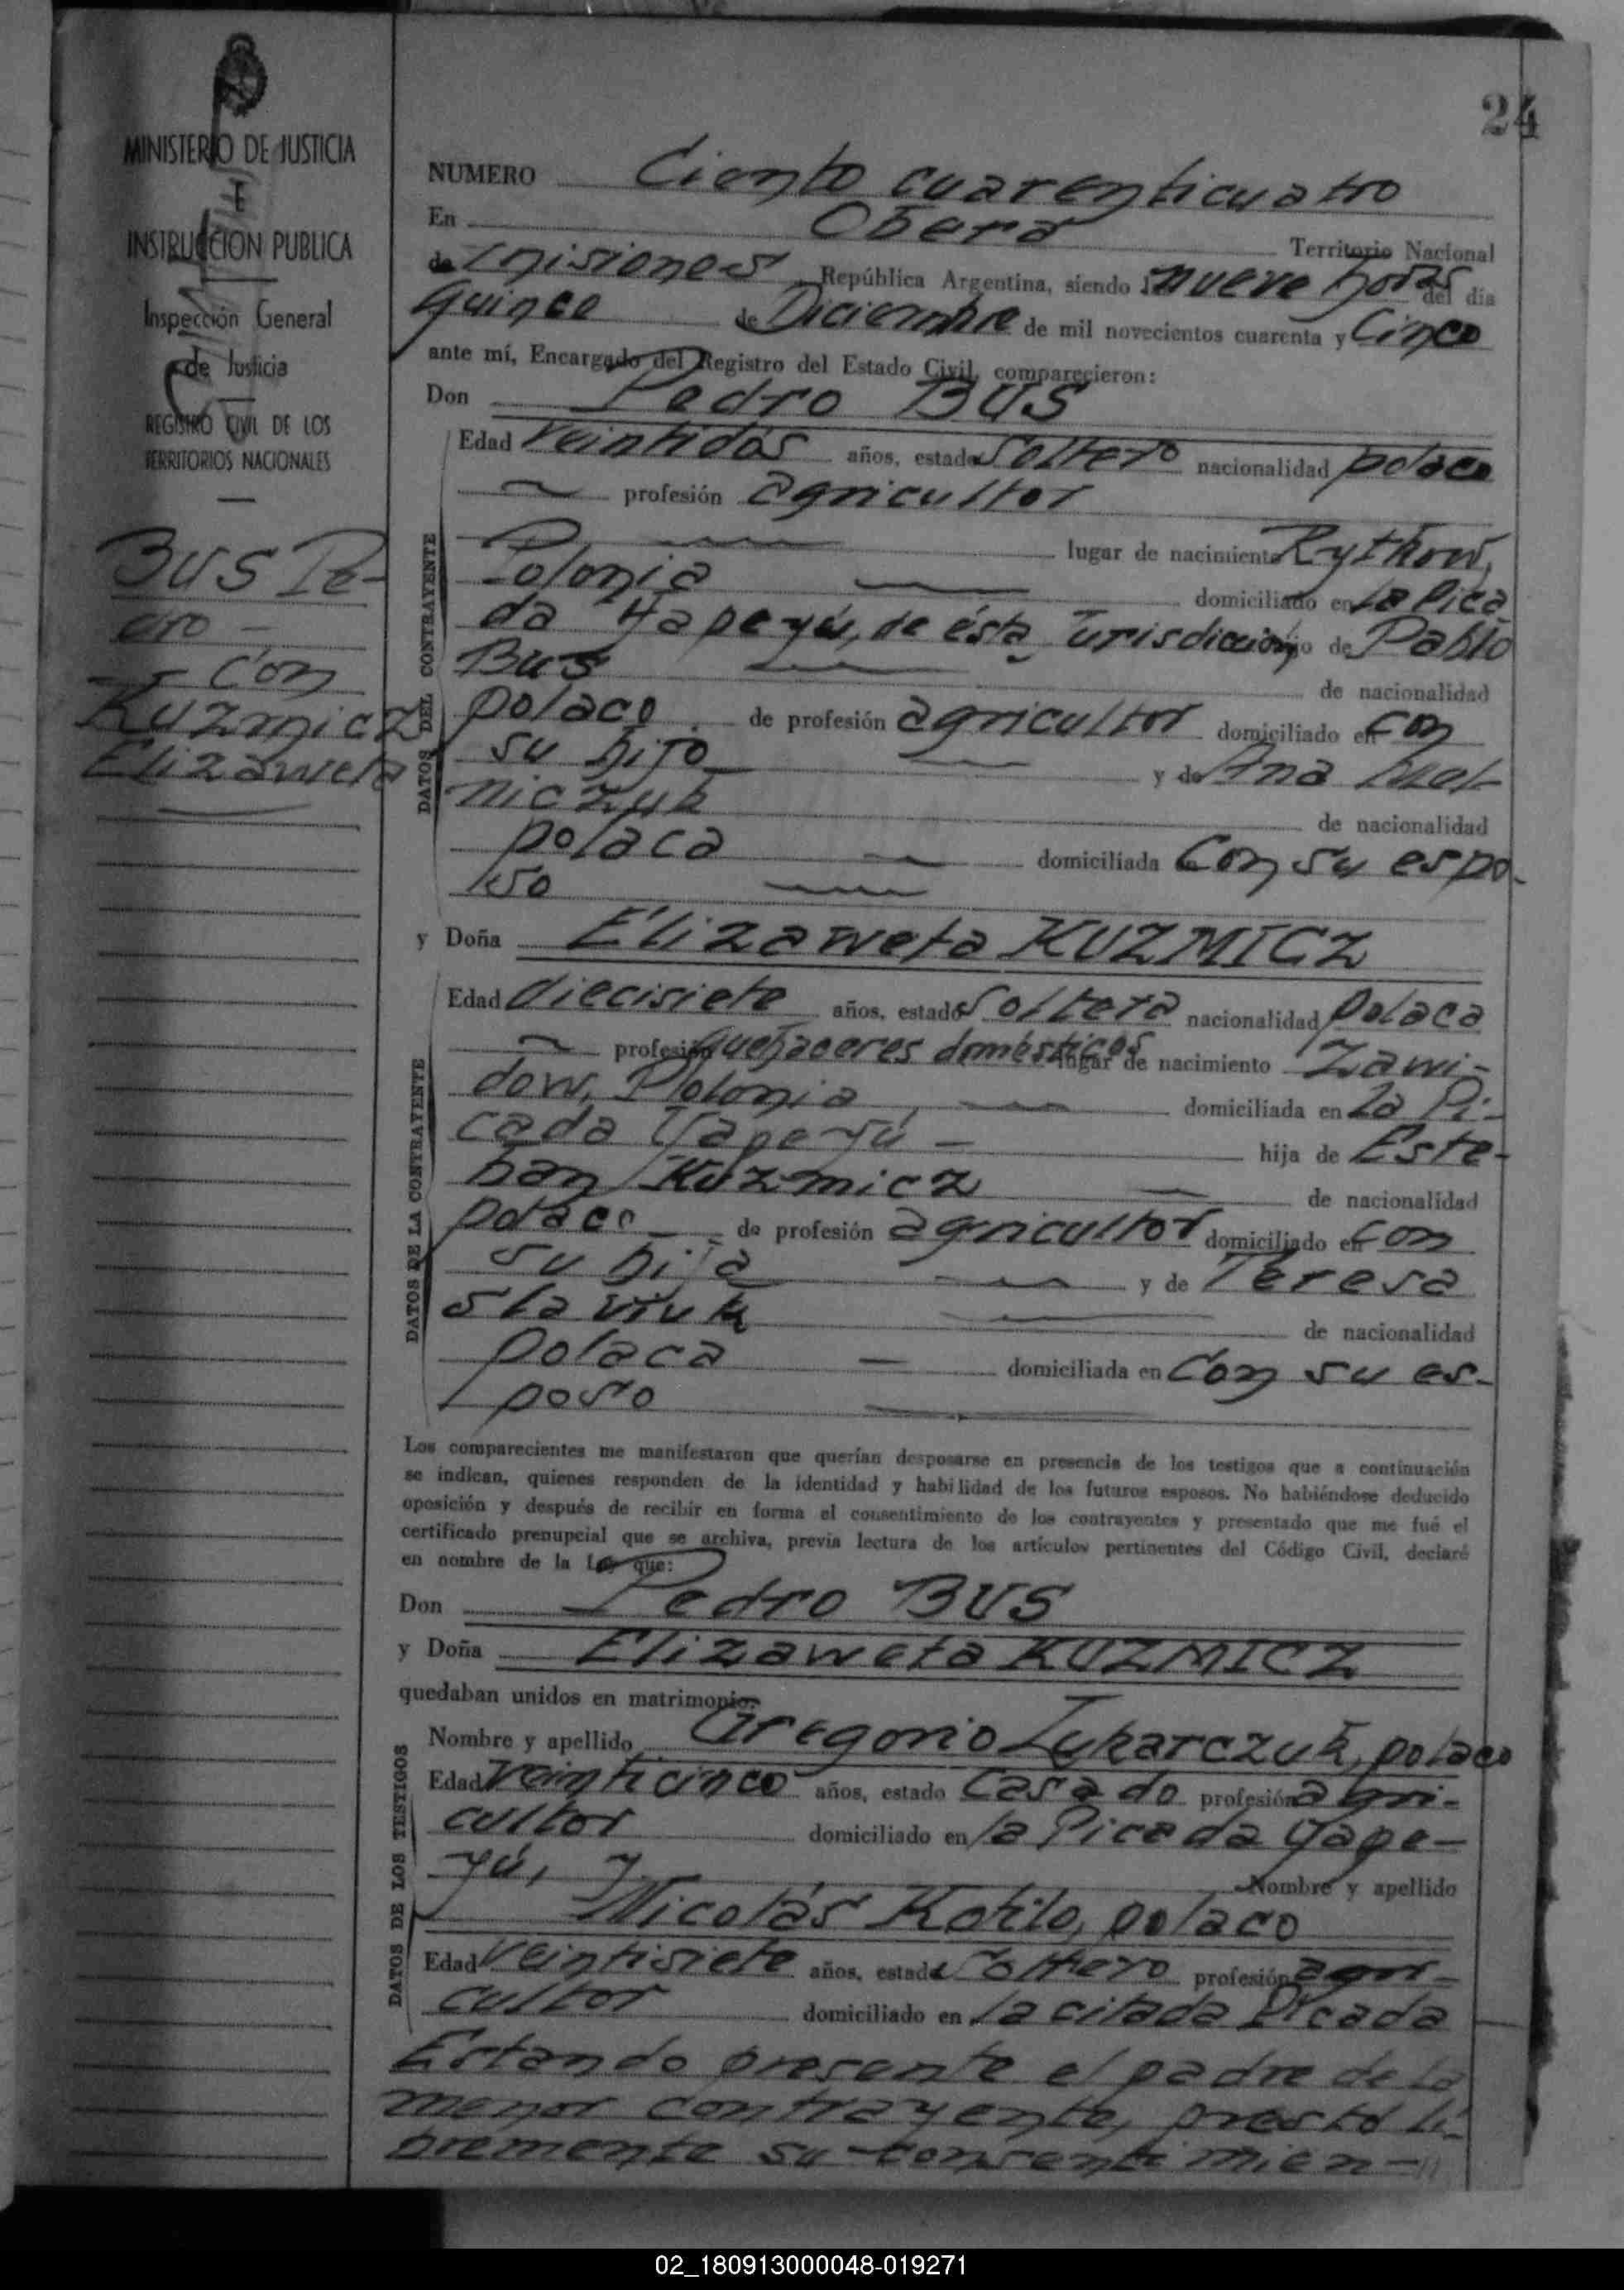 24
MINISTERIO DE JUSTICIA
E
INSTRUCCION PUBLICA
Inspección General
de Justicia
REGISTRO CIVIL DE LOS
TERRITORIOS NACIONALES
BUS Pe-
dro -
- Con
Kuzmicz
Elizaweta
NUMERO Ciento cuarenticuatro
En Oberá Territorio Nacional
de Misiones República Argentina, siendo las nueve horas del día
quince de Diciembre de mil novecientos cuarenta y Cinco
ante mí, Encargado del Registro del Estado Civil, comparecieron:
Don Pedro BUS
DATOS DEL CONTRAYENTE
Edad veintidós años, estado Soltero nacionalidad polaco
profesión agricultor
lugar de nacimiento Rythow,
Polonia domiciliado en la Pica
da Yapeyú, de ésta Jurisdicción hijo de Pablo
Bus de nacionalidad
polaco de profesión agricultor domiciliado en con
su hijo y de Ana
niczuk de nacionalidad
polaca domiciliada Con su espo-
so
y Doña Elizaweta KUZMICZ
DATOS DE LA CONTRAYENTE
Edad diecisiete años, estado Soltera nacionalidad polaca
profesión quehaceres domésticos lugar de nacimiento Zawi-
dow, Polonia, domiciliada en la Pi-
cada Yapeyú - hija de Este-
ban Kuzmicz de nacionalidad
polaco de profesión agricultor domiciliado en con
su hija y de Teresa
Slaviuk de nacionalidad
polaca - domiciliada en Con su es-
poso
Los comparecientes me manifestaron que querían desposarse en presencia de los testigos que a continuación
se indican, quienes responden de la identidad y habilidad de los futuros esposos. No habiéndose deducido
oposición y después de recibir en forma el consentimiento de los contrayentes y presentado que me fué el
certificado prenupcial que se archiva, previa lectura de los artículos pertinentes del Código Civil, declaré
en nombre de la Ley que:
Don Pedro BUS
y Doña Elizaweta KUZMICZ
quedaban unidos en matrimonio.
DATOS DE LOS TESTIGOS
Nombre y apellido Gregorio Lukarczuk, polaco
Edad veinticinco años, estado Casado profesión agri-
cultor domiciliado en la Picada Yape-
yú, y Nombre y apellido
Nicolás Kotilo, polaco
Edad veintisiete años, estado Soltero profesión agri-
cultor domiciliado en la citada Picada
Estando presente el padre de la
menor contrayente, prestó li-
bremente su consentimien-
02_180913000048-019271